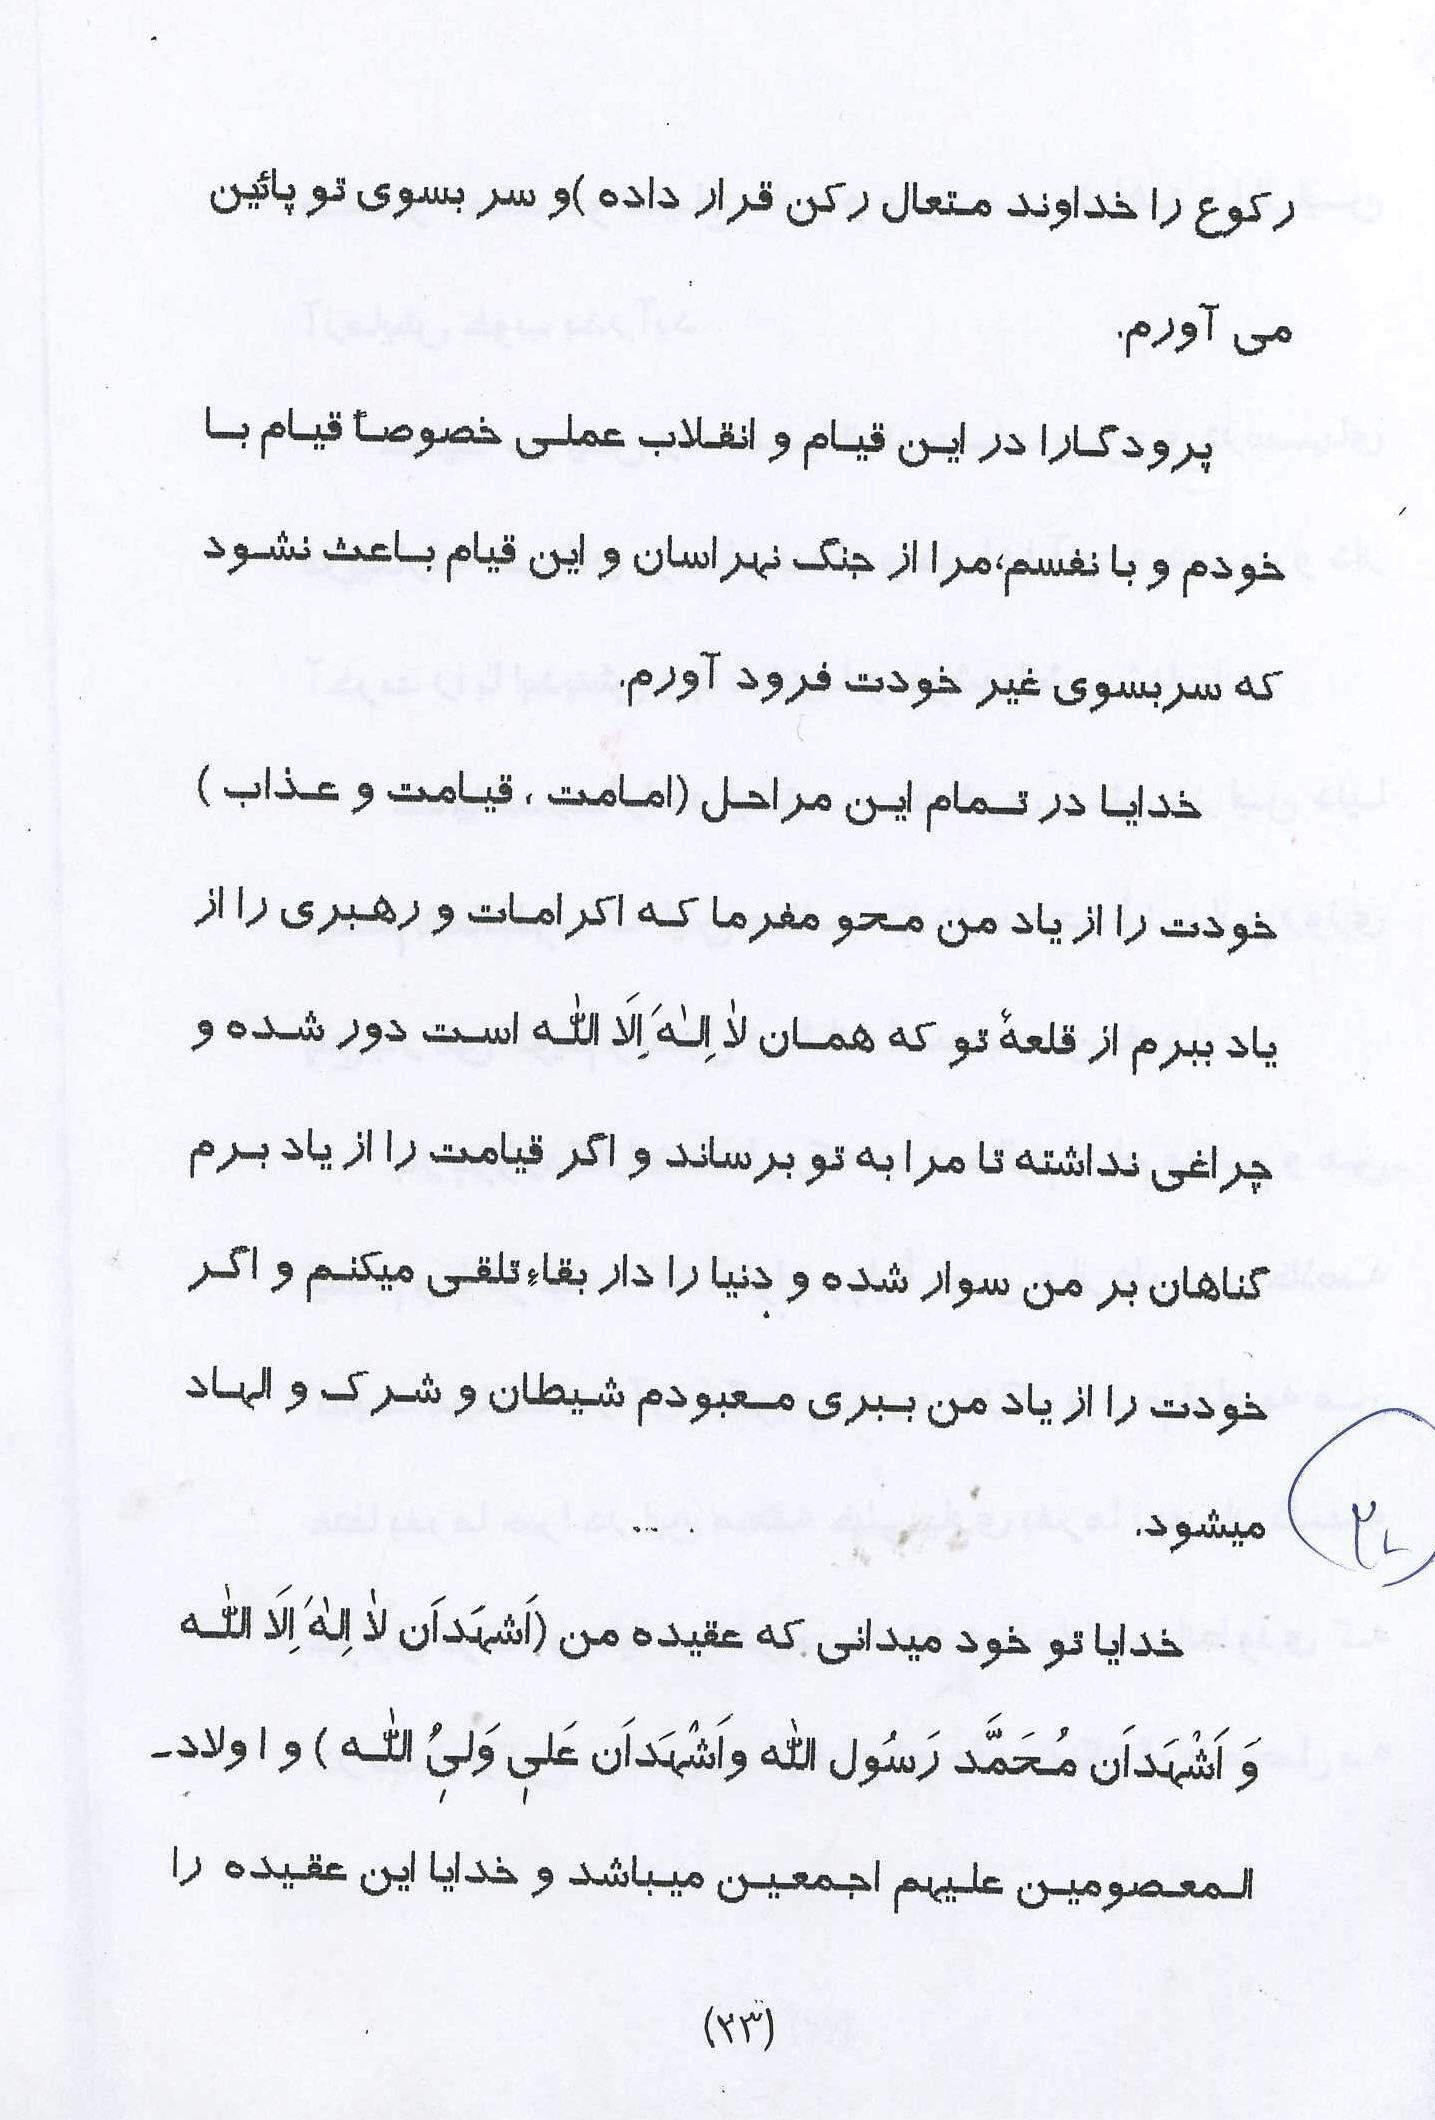 رکوع را خداوند متعال رکن قرار داده )و سر بسوی تو پائین
می آورم.
پرودگارا در این قیام و انقلاب عملی خصوصاً قیام با
خودم و با نفسم؛مرا از جنگ نهراسان و این قیام باعث نشود
که سربسوی غیر خودت فرود آورم.
خدایا در تمام این مراحل (امامت ، قیامت و عذاب )
خودت را از یاد من محو مفرما که اکرامات و رهبری را از
یاد ببرم از قلعهٔ تو که همان لٰا اِلٰهَ اِلَا اللّٰه است دور شده و
چراغی نداشته تا مرا به تو برساند و اگر قیامت را از یاد برم
گناهان بر من سوار شده و دنیا را دار بقاءِ تلقی میکنم و اگر
خودت را از یاد من ببری معبودم شیطان و شرک و الهاد
میشود.
خدایا تو خود میدانی که عقیده من (اَشهَداَن لٰا اِلٰهَ اِلَا اللّٰه
وَ اَشْهَداَن مُحَمَّد رَسُول اللّٰه واَشْهَداَن عَلیِ وَلیُِ اللّٰه ) و اولاد-
المعصومین علیهم اجمعین میباشد و خدایا این عقیده را
(۲۳)